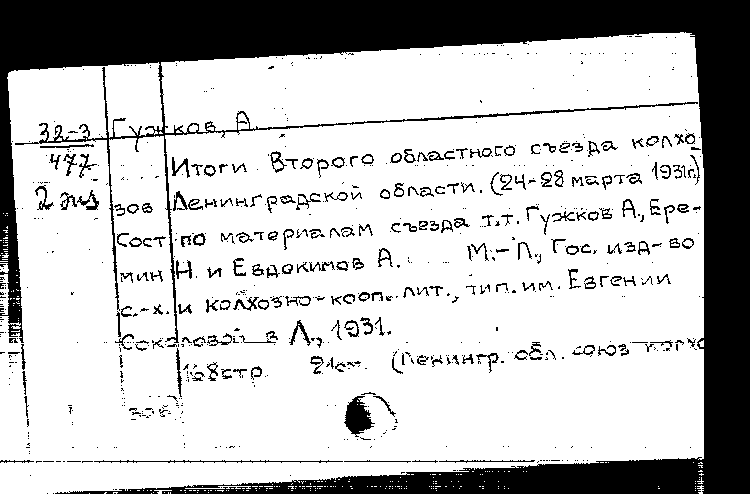 32-3 Гужков, А.
477
Итоги Второго областного съезда колхо
2 экз
зов Ленинградской области. (24-28 марта 1931г.)
Сост. по материалам съезда т.т. Гужков А., Ере-
мин Н. и Евдокимов А. М.-Л., Гос. изд-во
с.-х. и колхозно-кооп. лит., тип. им. Евгении
Соколовой в Л., 1931.
168стр. 21см. (Ленингр. обл. союз колхо
зов)